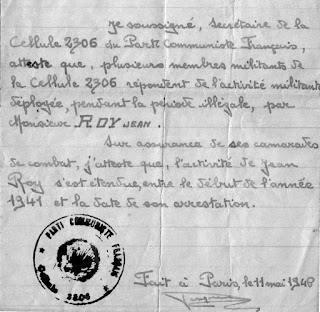 Je soussigné, Secrétaire de la
Cellule 2306 du Parti Communiste Français,
atteste que, plusieurs membres militants de
la Cellule 2306 répondent de l'activité militante
déployée, pendant la période illégale, par
Monsieur ROY JEAN.
Sur assurance de ses camarades
de combat, j'atteste que, l'activité de Jean
Roy s'est étendue, entre le début de l'année
1941 et la date de son arrestation.
PARTI COMMUNISTE FRANÇAIS
Cellule 2306
Fait à Paris, le 11 mai 1948